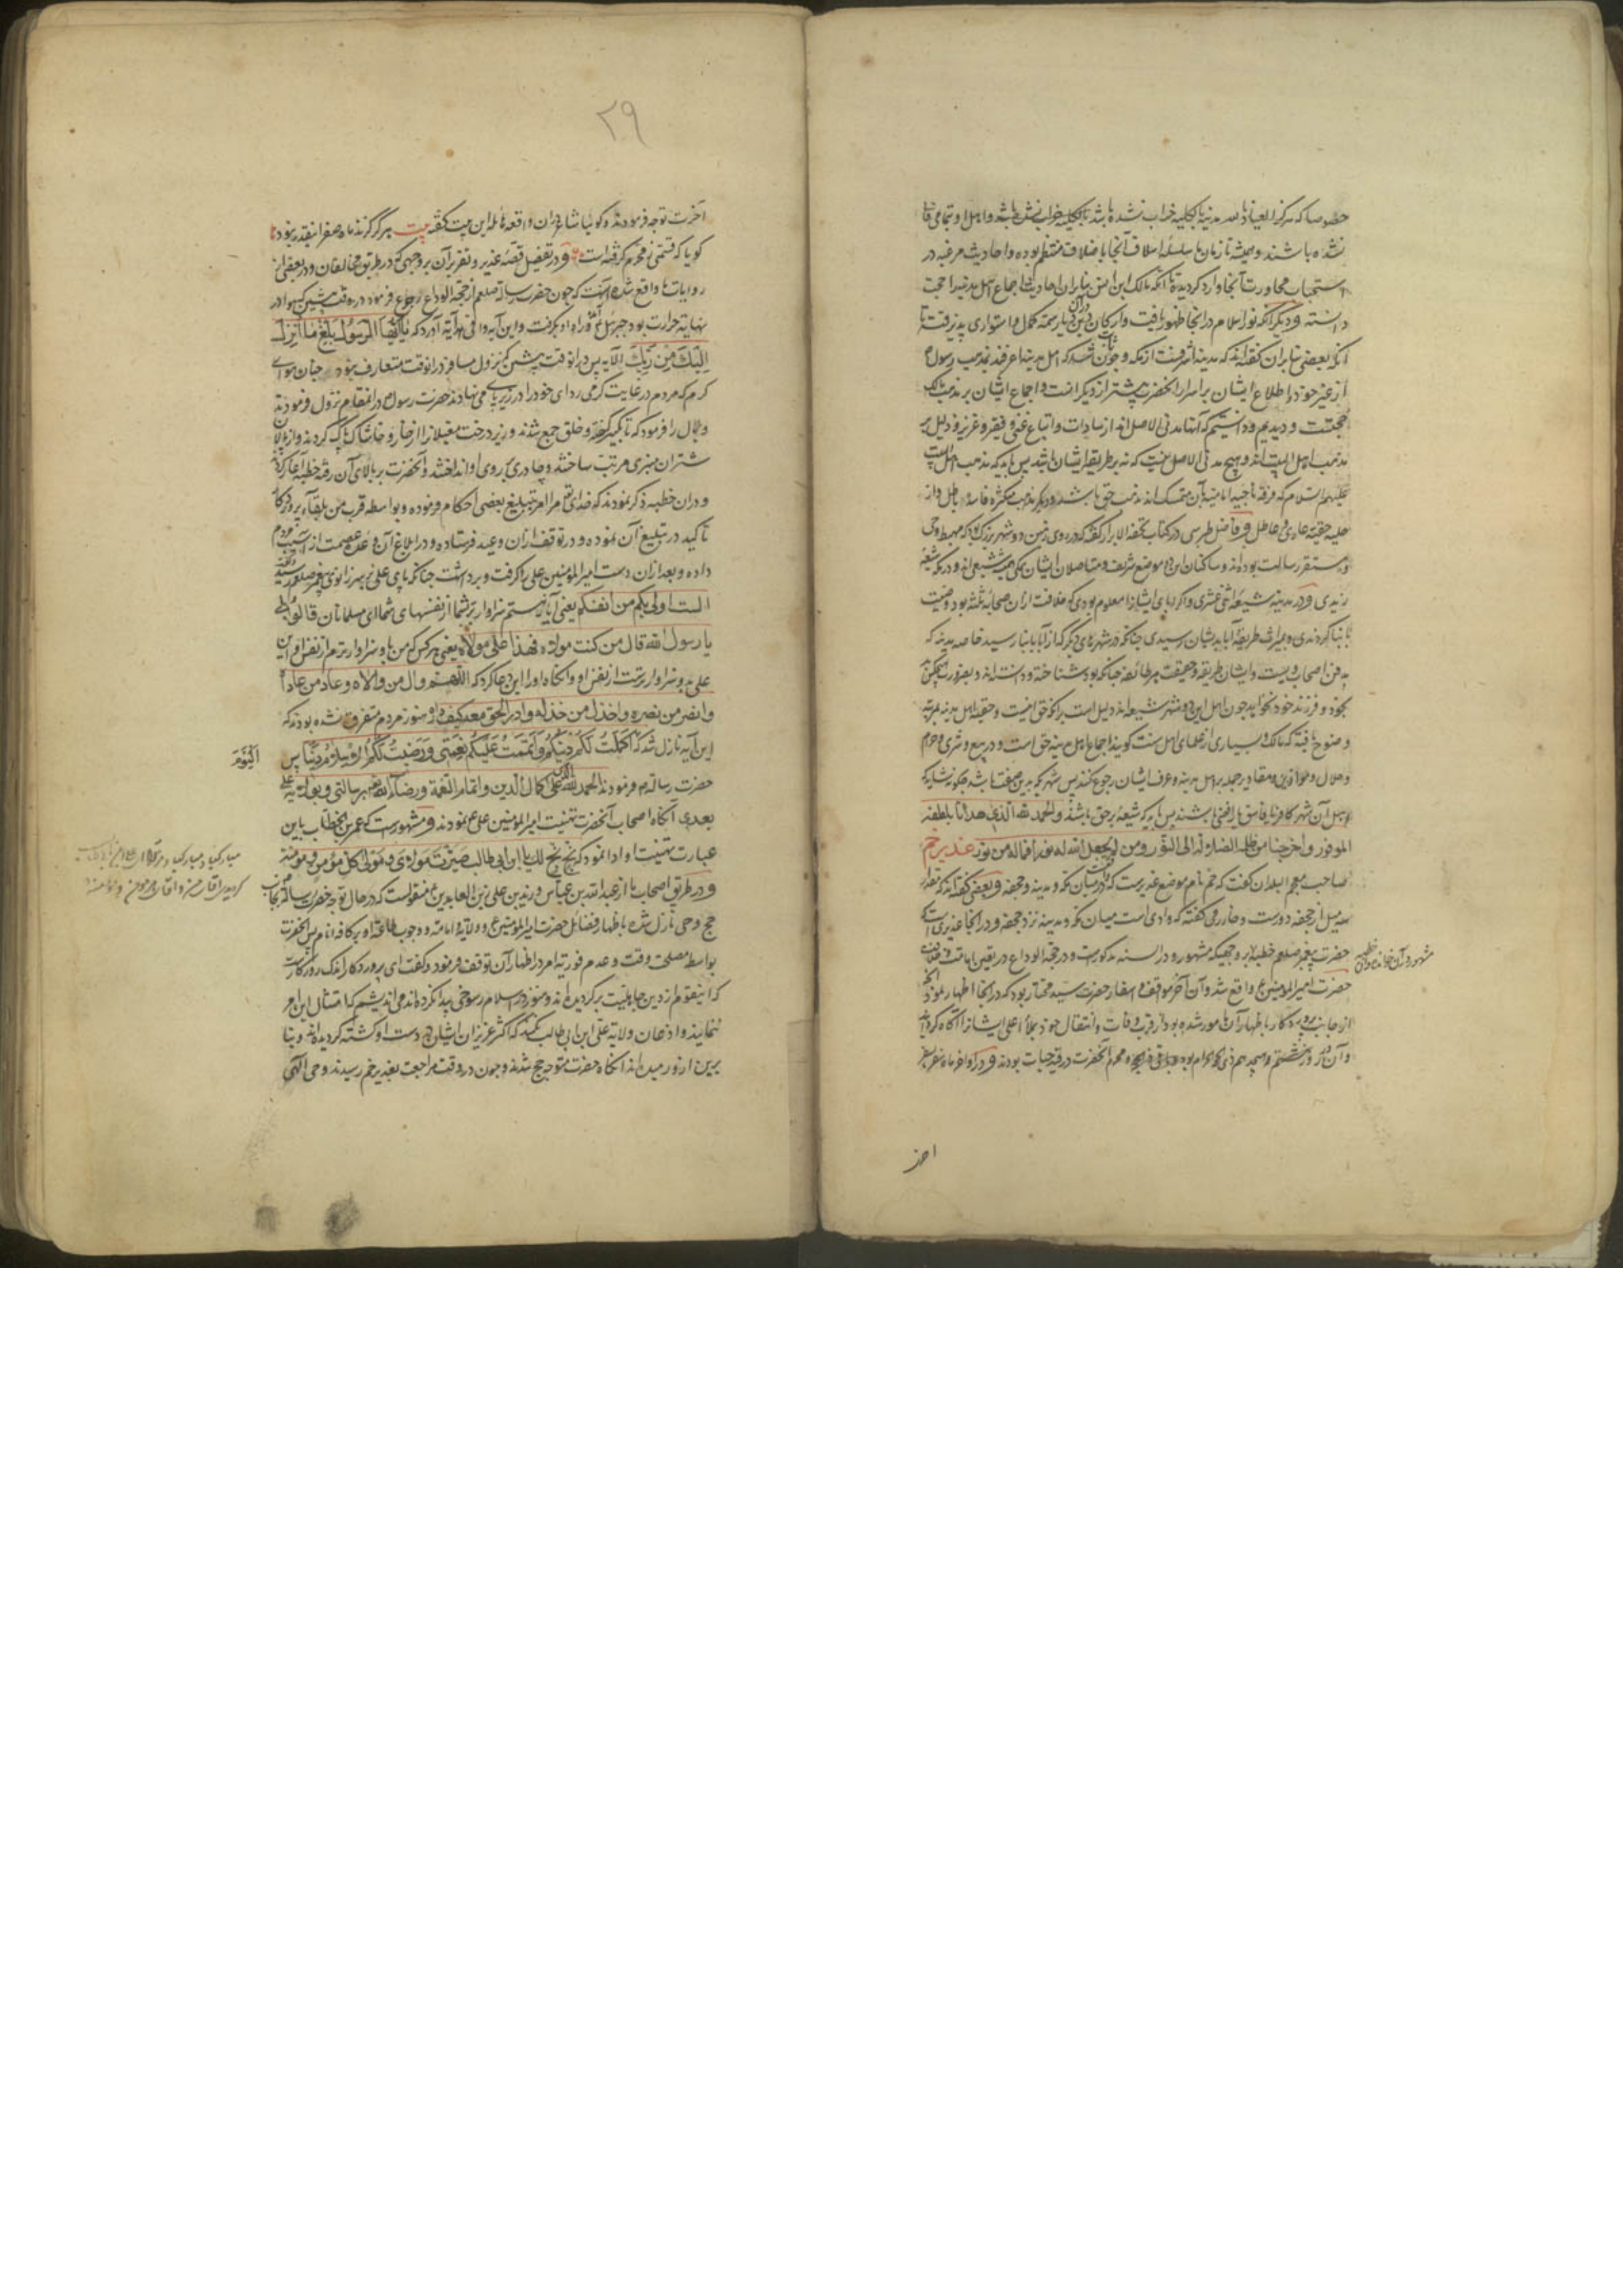 خصوصا که هرگز العیاذ بالله مدینه بالکلیه خراب نشده باشد یا بالکلیه خراب نشده باشد و اهل او بتمامی فانی
نشده باشند و همیشه تا زمان ما سلسله اسلاف آنجا باخلاف منتظم بوده و احادیث مرغبه در
استحباب مجاورت آنجا وارد گردیده تا آنکه مالک ابن انس بنابران احادیث اجماع اهل مدینه را حجت
دانسته و دیگر آنکه نور اسلام در آنجا ظهور یافت و ارکان دین دران دیار سمت کمال و استواری پذیرفت تا
آنکه بعضی بنابران گفته‌اند که مدینه اشرفست از مکه و چون ثابت شد که اهل مدینه اعرفند بمذهب رسول
از غیر خود و اطلاع ایشان بر اسرار آنحضرت بیشتر از دیگرانست و اجماع ایشان بر مذهب مالک
حجتست و دیدیم و دانستیم که آنها مدنی الاصل‌اند از سادات و اتباع غنی و فقیر و عزیز و ذلیل بر
مذهب اهل البیت‌اند و هیچ مدنی الاصل نیست که نه بر طریقه ایشان باشد پس باید که مذهب اهل البیت
علیهم السلام که فرقه ناجیه امامیه بآن متمسک‌اند مذهب حق باشد و دیگر مذاهب متکثره فاسد و باطل و از
حلیه حقیقه عاری و عاطل و فاضل طبرسی در کتاب تحفة الابرار گفته که در روی زمین دو شهر بزرگ که مهبط وحی
و مستقر رسالت بوده‌اند و ساکنان این دو موضع شریف و متاصلان ایشان همیشه شیعی‌اند و در مکه شیعه
زیدی و در مدینه شیعه اثنی عشری و اگر ابای ایشانرا معلوم بودی که خلافت ازان صحابه ثلثه بود وصیت
بابنا کردندی و بمیراث طریقه آبا بدیشان رسیدی چنانکه در شهرهای دیگر که از آبا بابنا رسید خاصه مدینه که
مدفن اصحاب ویست و ایشان طریقه و حقیقت هر طائفه چنانکه بود شناخته و دانسته‌اند و بضرورت هیچکس بد
بخود و فرزند خود نخواهد چون اهل این دو شهر شیعه‌اند دلیل است بر آنکه حق اینست و حقیقه اهل مدینه بمرتبه
وضوح یافته که مالک و بسیاری از علمای اهل سنت گویند اجماع اهل مدینه حق است و در بیع و شری و حرام
و حلال و موازین و مقادیر جمله بر اهل مدینه و عرف ایشان رجوع کنند پس شهری که بدین صفت باشد چگونه شاید که
اهل آن شهر کافر یا فاسق یا رافضی باشند پس باید که شیعه بر حق باشند و الحمد لله الذی هدانا بلطفه
الموفور و اخرجنا من ظلمة الضلالة الی النور و من لم یجعل الله له نورا فماله من نور غدیر خم
صاحب معجم البلدان گفت که خم نام موضع غدیریست که در میان مکه و مدینه و جحفه و بعضی گفته‌اند که بقدر
سه میل از جحفه دورست و حازمی گفته که وادی است میان مکه و مدینه نزد جحفه و در آنجا غدیری است که
حضرت پیغمبر صلعم خطبه بر وجهی که مشهور و در السنه مذکورست و در حجة الوداع در یقین امامت و خلافت
حضرت امیر المؤمنین ع واقع شد و آن آخر مواقف و اسفار حضرت سید مختار بود که در آنجا اظهار نمود آنچه
از جانب پروردگار باظهار آن مامور شده بود و از قرب وفات و انتقال خود بملأ اعلی ایشانرا آگاه گردانید
و آن در روز هشتم و هیجدهم ذی الحجة الحرام بود و باقی ذی الحجه و محرم آنحضرت در قید حیات بودند و در اواخر ماه صفر بسفر
اخر
۲۹
آخرت توجه فرمودند و گویا شاعر دران واقعه هائله این بیت گفته بیت هرگز گزند ماه صفر اینقدر نبود
گویا که قسمتی ز محرم گرفته است و در تفصیل قصه غدیر و تقریر آن بر وجهی که در طریق مخالفان و در بعضی از
روایات ما واقع شده آنست که چون حضرت رسالة صلعم از حجة الوداع رجوع فرمود در وقت پیشین که هوا در
نهایة حرارت بود جبرئیل ع فرا راه او بگرفت و این آیه وافی هدایه آورد که یا ایها الرسول بلغ ما انزل
الیک من ربک الآیه پس درانوقت پیشین که نزول مسافر درانوقت متعارف نبود و چنان هوای
گرم که مردم در غایت گرمی ردای خود را در زیر پای می‌نهادند حضرت رسول در آنمقام نزول فرمودند
و بلال را فرمود که تا تکبیر گفته و خلق جمع شدند و زیر درخت مغیلانرا از خار و خاشاک پاک کردند و از پالان
شتران منبری مرتب ساختند و چادری بر روی او انداختند و آنحضرت بر بالای آن رفته خطبه آغاز کرد
و دران خطبه ذکر نمودند که خدای تع مرا امر بتبلیغ بعضی احکام فرموده و بواسطه قرب من بلقاء پروردگار
تاکید در تبلیغ آن نموده و در توقف ازان وعید فرستاده و در ابلاغ آن وعده عصمت از آسیب مردم
داده و بعد ازان دست امیر المؤمنین علی را گرفت و برداشت چنانکه پای علی ع بسر زانوی پیغمبر صلعم رسید و گفت
الست اولی بکم من انفسکم یعنی آیا نیستم سزاوارتر بشما از نفسهای شما ای مسلمانان قالوا بلی
یا رسول الله قال من کنت مولاه فهذا علی مولاه یعنی هر کس که من باو سزاوارترم از نفس او این
علی بدو سزاوارترست از نفس او و آنگاه او را این دعا کرد که اللهم وال من والاه و عاد من عاداه
و انصر من نصره و اخذل من خذله و ادر الحق معه کیف دار هنوز مردم متفرق نشده بودند که
این آیه نازل شد که اکملت لکم دینکم و اتممت علیکم نعمتی و رضیت لکم الاسلام دینا پس
الیوم
حضرت رساله م فرمودند الحمد لله علی اکمال الدین و اتمام النعمة و رضاء الله برسالتی و بولایة علی
بعدی آنگاه اصحاب آنحضرت تهنیت امیر المؤمنین علی ع نمودند و مشهورست که عمر بن الخطاب باین
عبارت تهنیت او ادا نمود که بخ بخ لک یا ابن ابی طالب صرت مولای و مولی کل مؤمن و مؤمنة
و در طریق اصحاب ما از عبد الله بن عباس و زید بن علی زین العابدین ع منقولست که در حال توجه حضرت رسالة م بجانب
حج وحی نازل شد باظهار فضائل حضرت امیر المؤمنین ع و ولایة و امامة و وجوب طاعة او بر کافه انام پس آنحضرت
بواسطه مصلحت وقت و عدم فوریة امر در اظهار آن توقف فرمود و گفت ای پروردگار اندک روزگاریست
که اینقوم از دین جاهلیت برگردیده‌اند و هنوز در اسلام رسوخی پیدا نکرده‌اند می‌اندیشم که امتثال این امر
ننمایند و اذعان ولایة علی ابن ابی طالب نکنند که اکثر عزیزان ایشان بر دست او کشته گردیده‌اند و بنا
برین از نور میدند آنگاه حضرت متوجه حج شدند و چون در وقت مراجعت بغدیر خم رسیدند وحی الهی